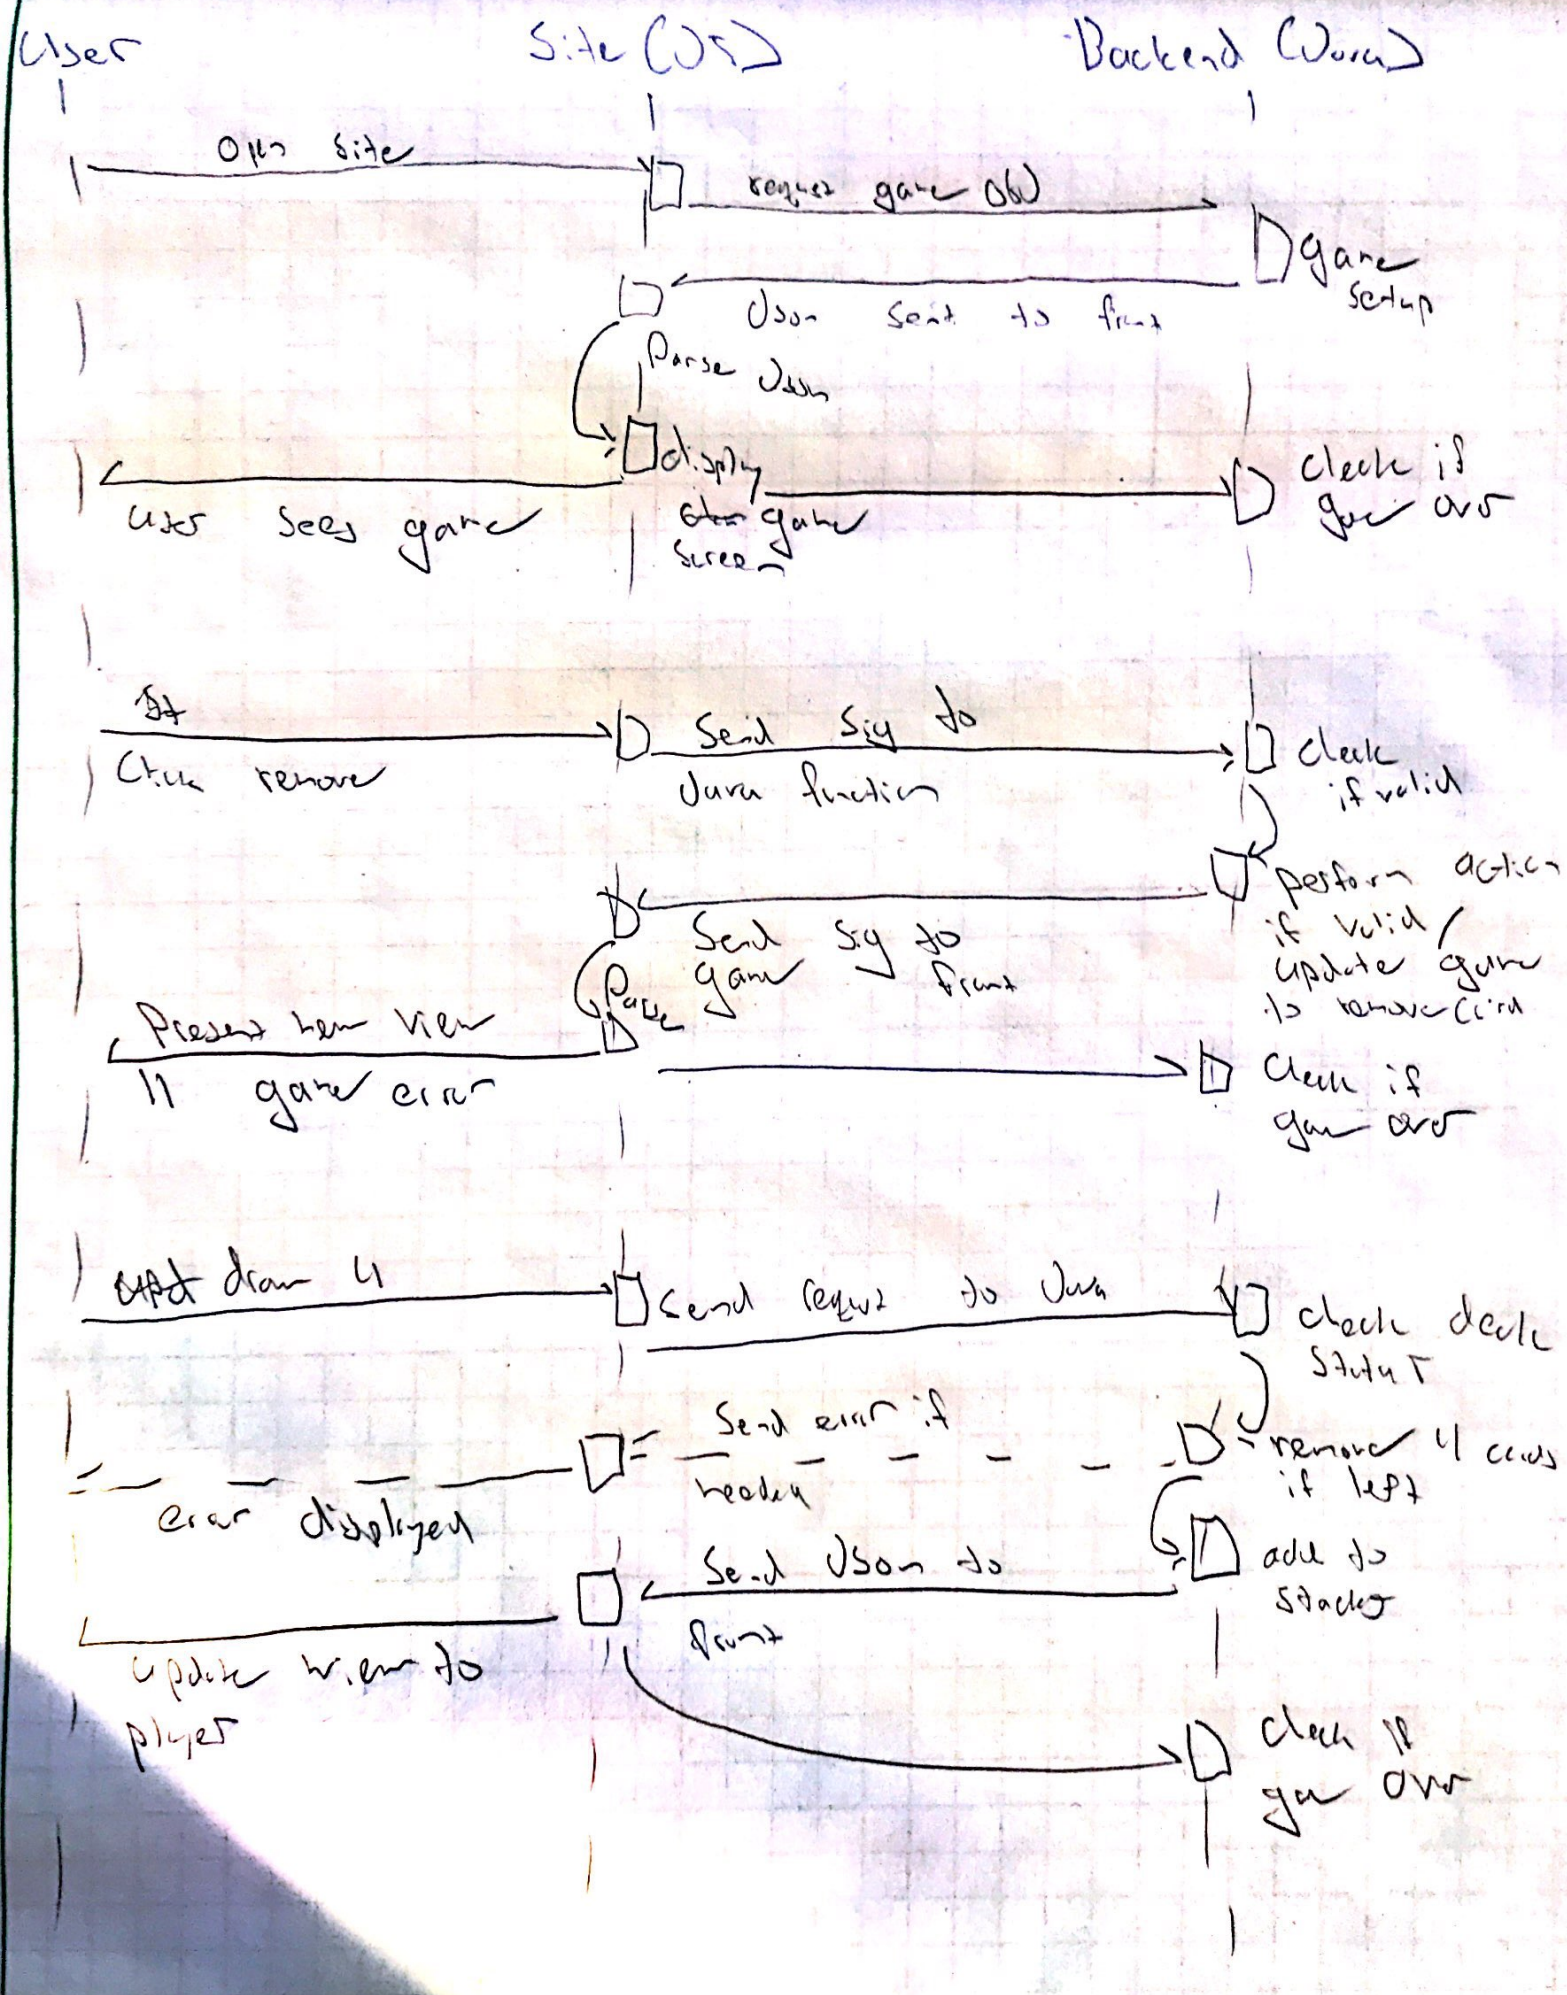 User
Site (JS)
Backend (Java)
Open Site
request game obj
game
setup
Json sent to front
Parse Json
display
game
screen
User sees game
check if
game over
Click remove
Send sig to
Java function
check
if valid
perform action
if valid /
update game
to remove card
Send sig to
game front
Parse
Present new view
|| game error
check if
game over
draw 4
Send request to Java
check deck
status
Send error if
needed
remove 4 cards
if left
error displayed
add to
stacks
Send Json to
front
update view to
player
check if
game over